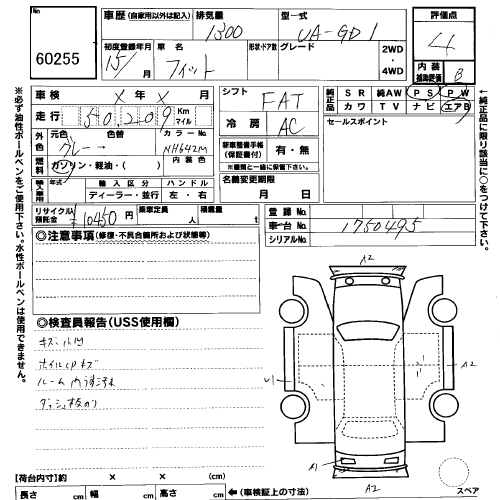 No
60255
車歴 (自家用以外は記入) 排気量 1300 型式 UA-GD1
初度登録年月 15/ 月 車名 フィット 形状・ドア数 グレード 2WD ・ 4WD
評価点 4
内装補助評価 B
車検 × 年 × 月
走行 50,209 Km マイル
外色 元色 グレー 色替 カラーNo NH642M
内装色
燃料 ガソリン・軽油・( )
輸入車用 年式 輸入区分 ハンドル
ディーラー・並行 左・右
リサイクル預託金 ¥10450円 乗車定員 人 積載量 t
シフト FAT
冷房 AC
新車整備手帳(保証書付) 有・無
※書類と一緒に保管して下さい。
名義変更期限 月 日
純正品 SR 純AW PS PW
カワ TV ナビ エアB
セールスポイント
登録No.
車台No. 1750495
シリアルNo.
◎注意事項 (修復・不具合箇所および状態等)
◎検査員報告(USS使用欄)
キズ・小凹
ホイルCPキズ
ルーム内汚れ
A2
U1
A2
A1
A2
スペア
【荷台内寸】約 × × (cm)
長さ cm 幅 cm 高さ cm ←(車検証上の寸法)
※必ず油性ボールペンをご使用下さい。水性ボールペンは使用できません。
←純正品に限り該当に○をつけて下さい。